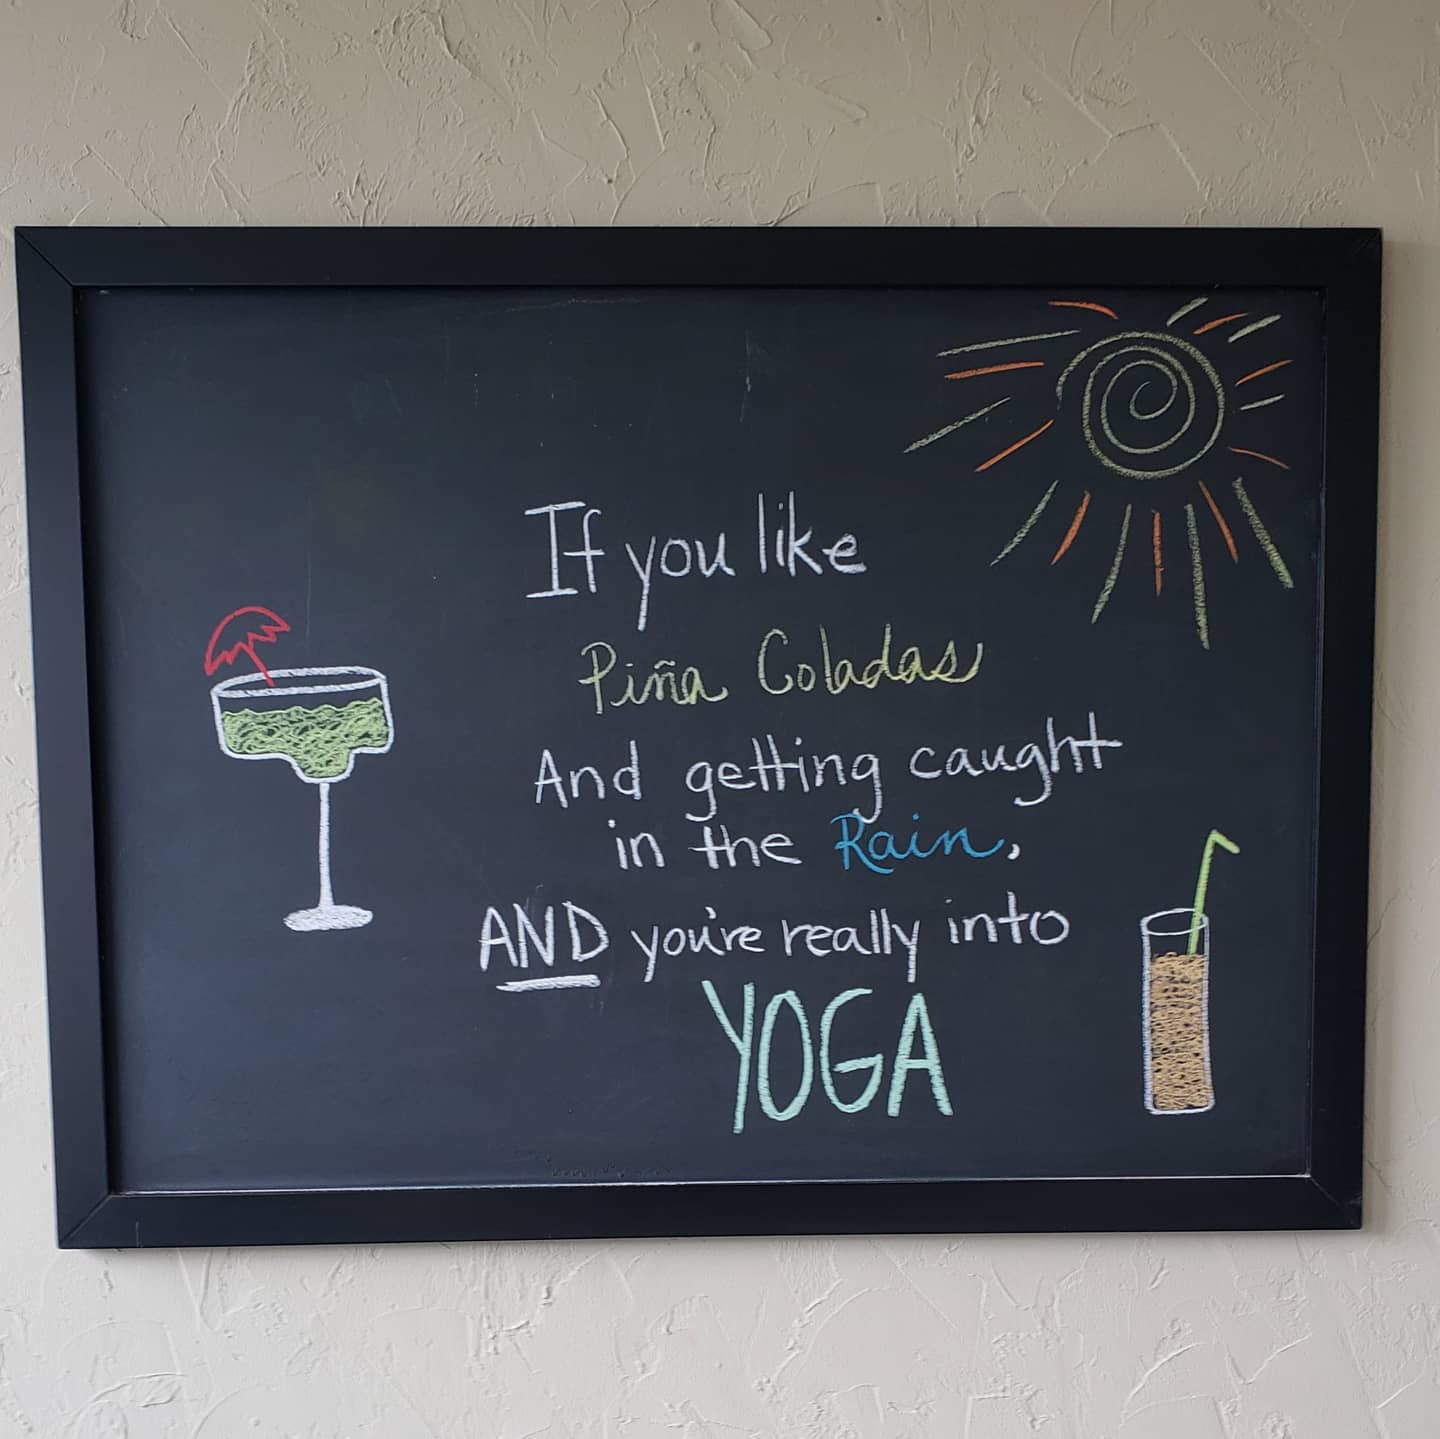 If you like
Piña Coladas
And getting caught
in the Rain,
AND you're really into
YOGA